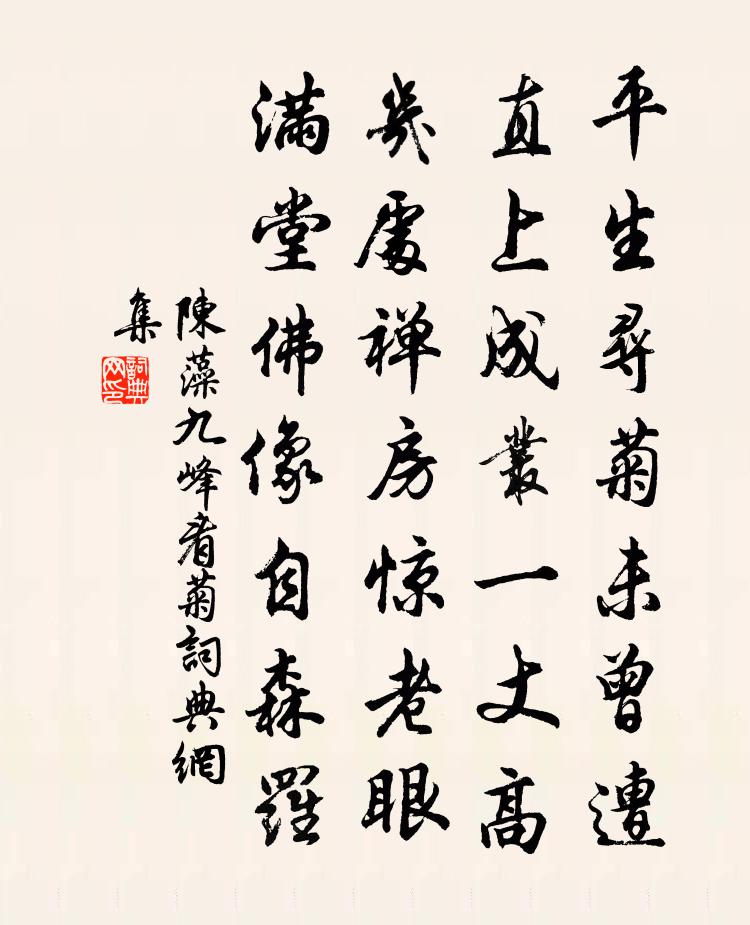 平生尋菊未曾遭
直上成叢一丈高
幾處禅房惊老眼
滿堂佛像自森羅
陳藻九峰看菊詞典網
集
詞典
网印